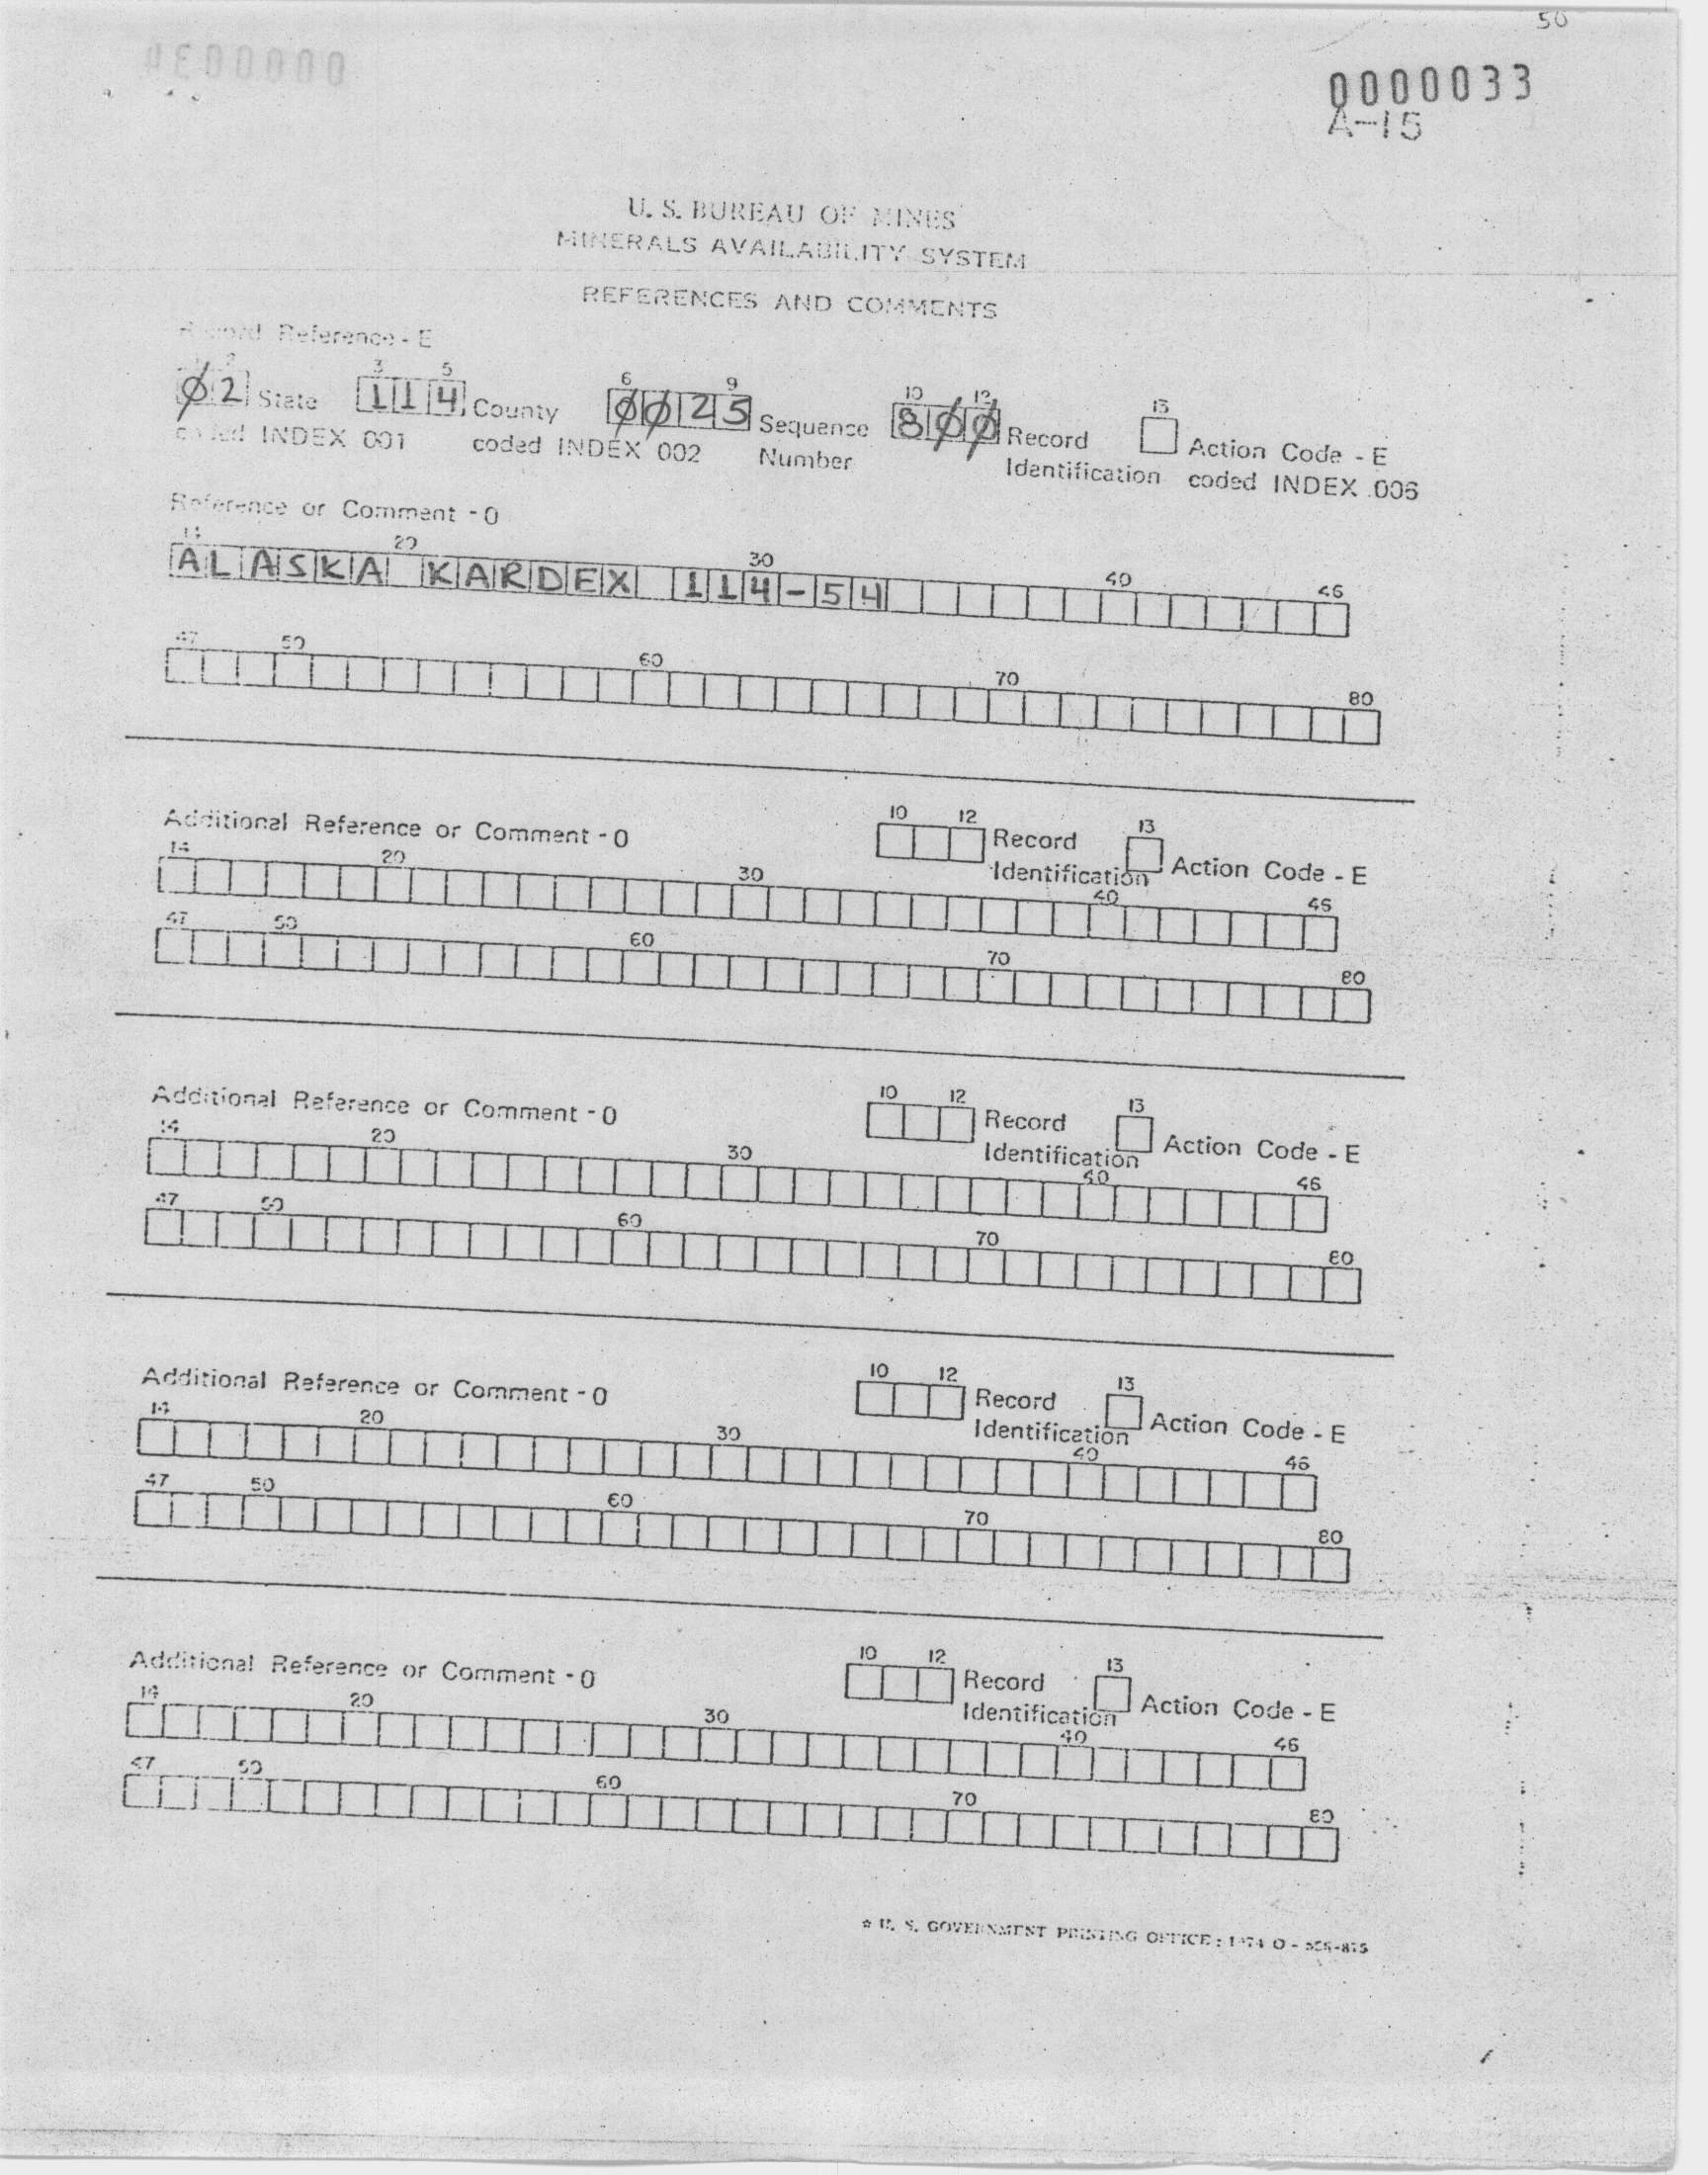 50
0000033
A-15
U. S. BUREAU OF MINES
MINERALS AVAILABILITY SYSTEM
REFERENCES AND COMMENTS
Record Reference - E
1 2 3 5 6 9 10 12 13
Ø2 State 114 County ØØ25 Sequence Number 8ØØ Record Identification Action Code - E
coded INDEX 001 coded INDEX 002 coded INDEX 006
Reference or Comment - O
14 20 30 40 46
ALASKA KARDEX 114-54
47 50 60 70 80
Additional Reference or Comment - O 10 12 Record Identification 13 Action Code - E
14 20 30 40 46
47 50 60 70 80
Additional Reference or Comment - O 10 12 Record Identification 13 Action Code - E
14 20 30 40 46
47 50 60 70 80
Additional Reference or Comment - O 10 12 Record Identification 13 Action Code - E
14 20 30 40 46
47 50 60 70 80
Additional Reference or Comment - O 10 12 Record Identification 13 Action Code - E
14 20 30 40 46
47 50 60 70 80
☆ U. S. GOVERNMENT PRINTING OFFICE : 1974 O -